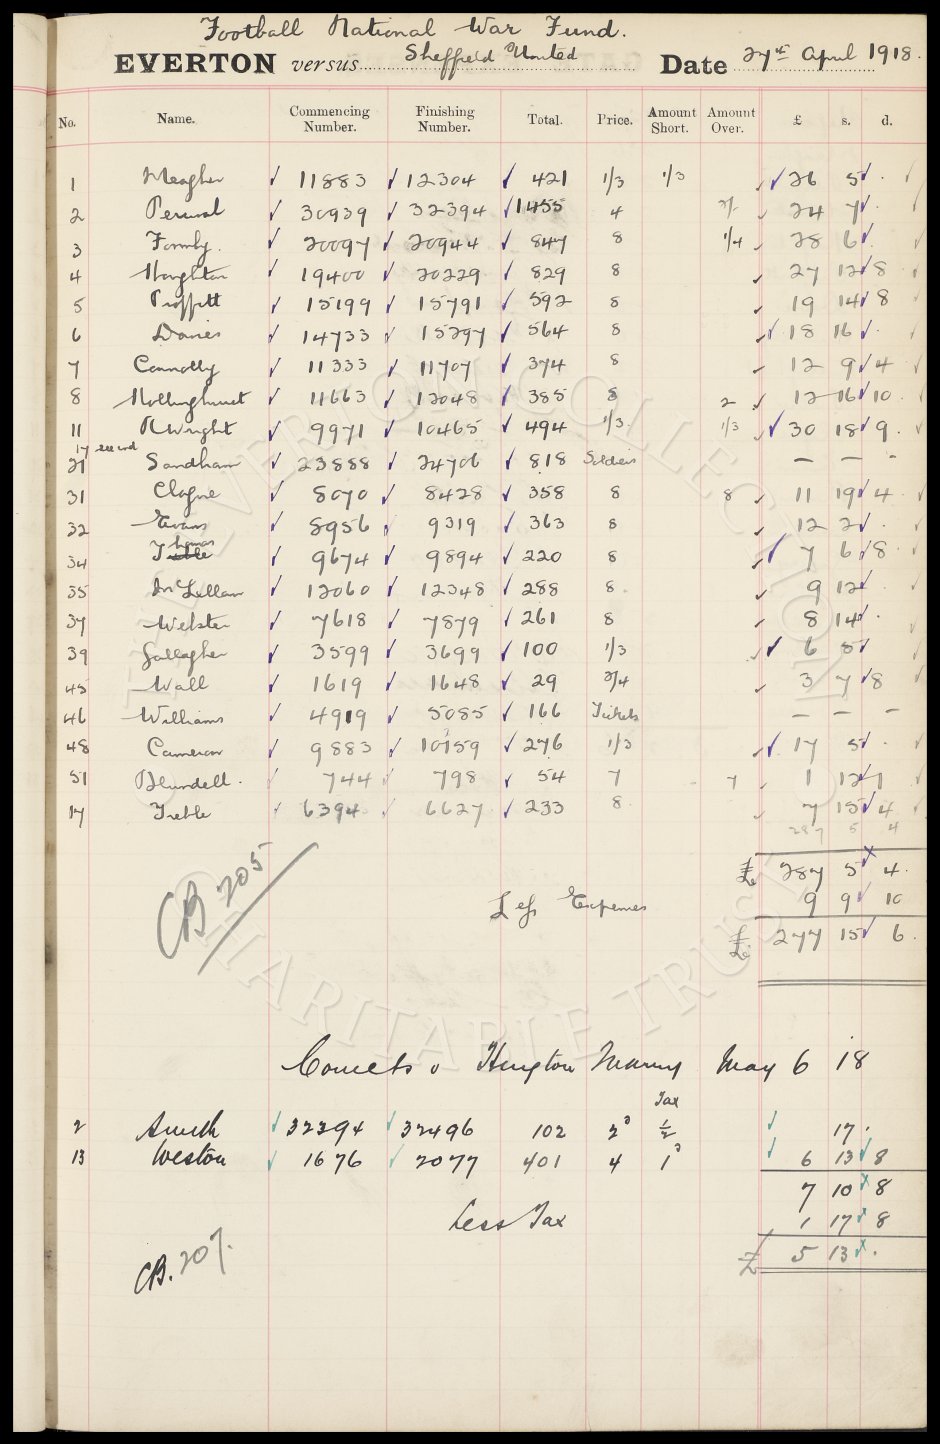 Football National War Fund.
EVERTON versus Sheffield United Date 27th April 1918.
No. Name. Commencing Number. Finishing Number. Total. Price. Amount Short. Amount Over. £ s. d.
1 Meagher 11883 12304 421 1/3 1/3 26 5 .
2 Percival 30939 32394 1455 4 2/- 24 7 .
3 Formby. 20097 20944 847 8 1/4 28 6 .
4 Houghton 19400 20229 829 8 27 12 8
5 Proffitt 15199 15791 592 8 19 14 8
6 Davies 14733 15297 564 8 18 16 .
7 Connolly 11333 11707 374 8 12 9 4
8 Hollinghurst 11663 12048 385 8 2 12 16 10
11 R Wright 9971 10465 494 1/3 1/3 30 18 9
17 second
21 Sandham 23888 24706 818 Soldiers — — —
31 Clague 8070 8428 358 8 8 11 19 4
32 Evans 8956 9319 363 8 12 2 .
34 Thomas 9674 9894 220 8 7 6 8
35 McLellan 12060 12348 288 8 9 12
37 Webster 7618 7879 261 8 8 14 .
39 Gallagher 3599 3699 100 1/3 6 5
45 Wall 1619 1648 29 2/4 3 7 8
46 Williams 4919 5085 166 Tickets — — —
48 Cameron 9883 10159 276 1/3 17 5 .
51 Blundell. 744 798 54 7 7 1 12 1
17 Treble 6394 6627 233 8 7 15 4
287 5 4
£ 287 5 4
CB 205
Less Expenses 9 9 10
£ 277 15 6
Comets v May 6 18
Tax
2 32394 32496 102 2d 1/2 17 .
13 Weston 1676 2077 401 4 1d 6 13 8
7 10 8
Less Tax 1 17 8
CB. 207.
£ 5 13 .
EVERTON COLLECTION
CHARITABLE TRUST